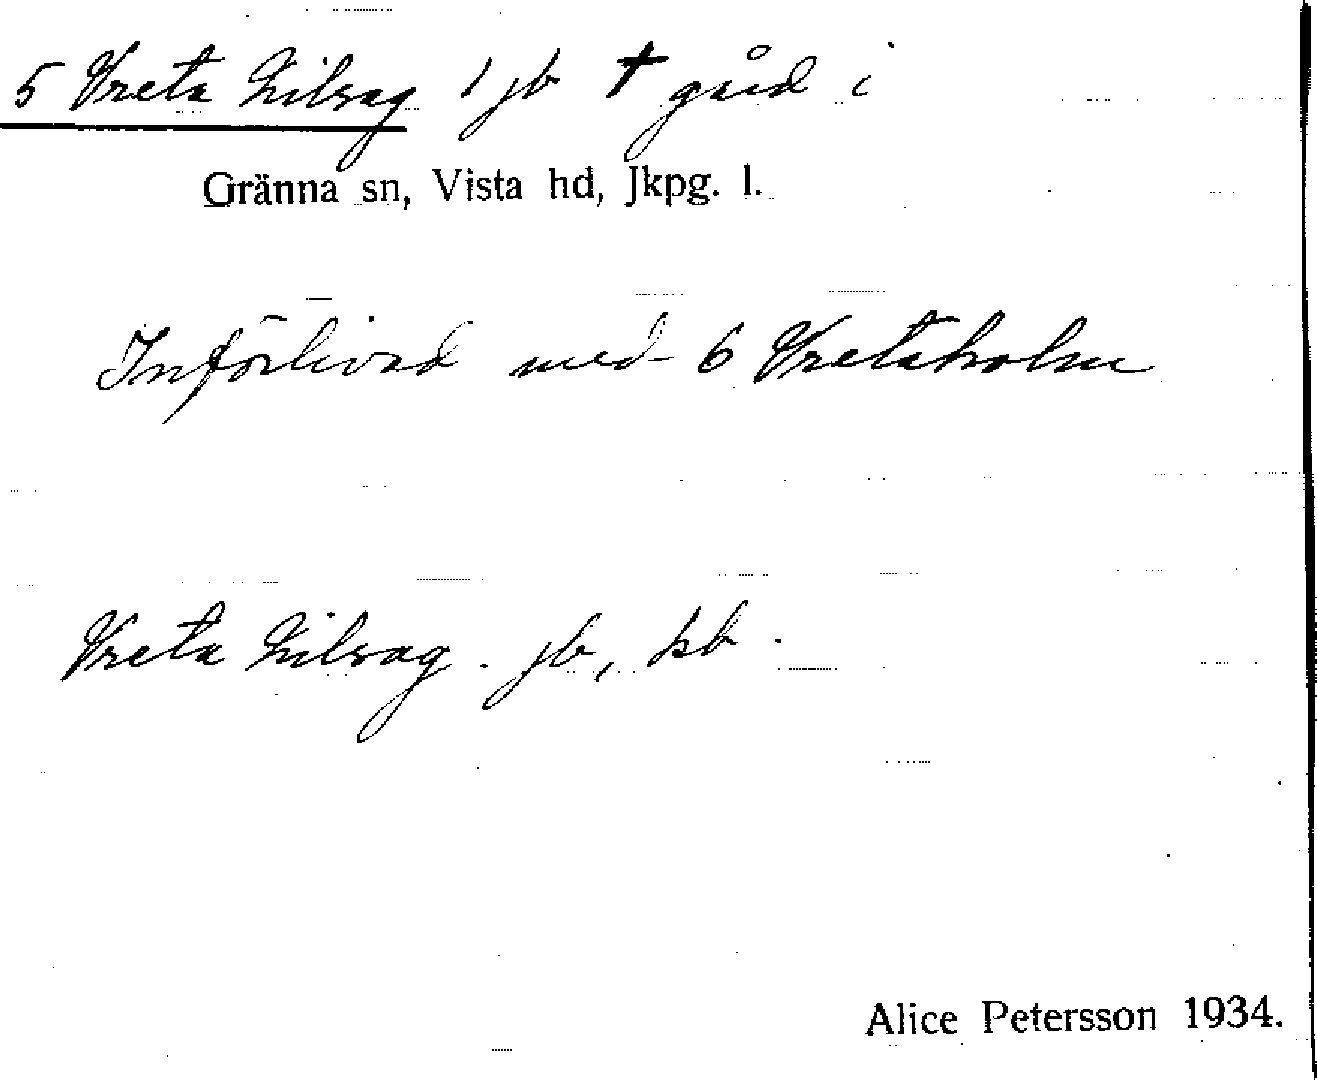 5 Vreta Lilsag 1 jb † gård i
Gränna sn, Vista hd, Jkpg. l.
Införlivad med 6 Vretaholm
Vreta Lilsag. jb, kb.
Alice Petersson 1934.